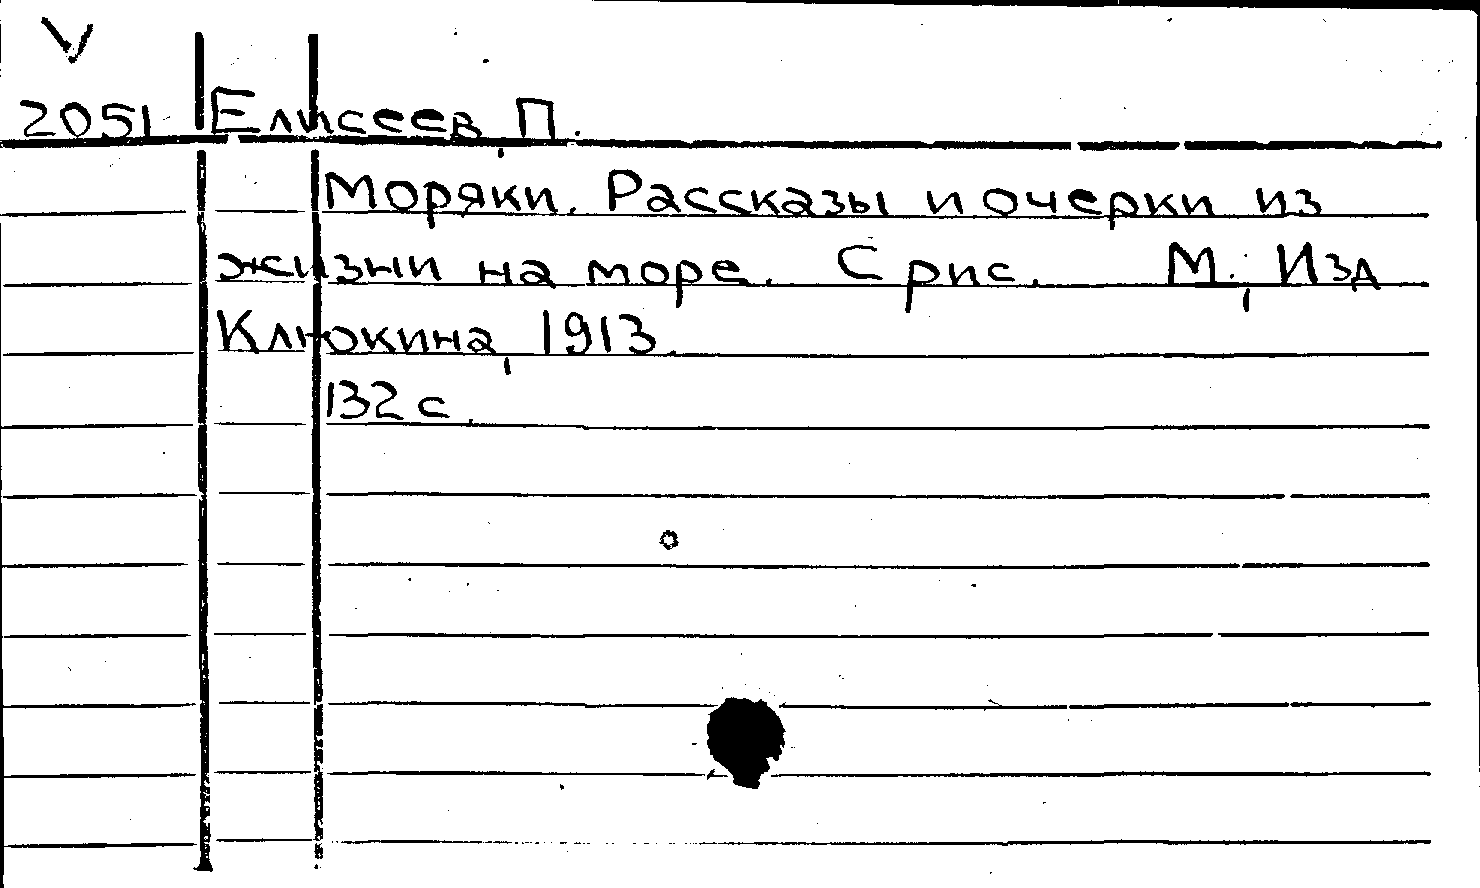 V
2051 Елисеев, П.
Моряки. Рассказы и очерки из
жизни на море. С рис. М., Изд
Клюкина, 1913.
132 с.